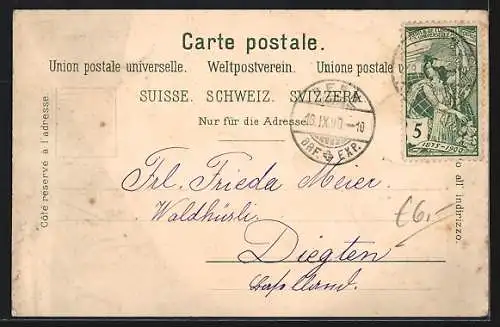 Carte postale.
Union postale universelle. Weltpostverein. Unione postale
SUISSE. SCHWEIZ. SVIZZERA
Nur für die Adresse
Côté réservé à l'adresse.
o all' indirizzo.
5
1875-1900
IX 00 -10
BRF. EXP.
Frl. Frieda Meier
Waldhürli
Diegten
Baselland.
£6.-